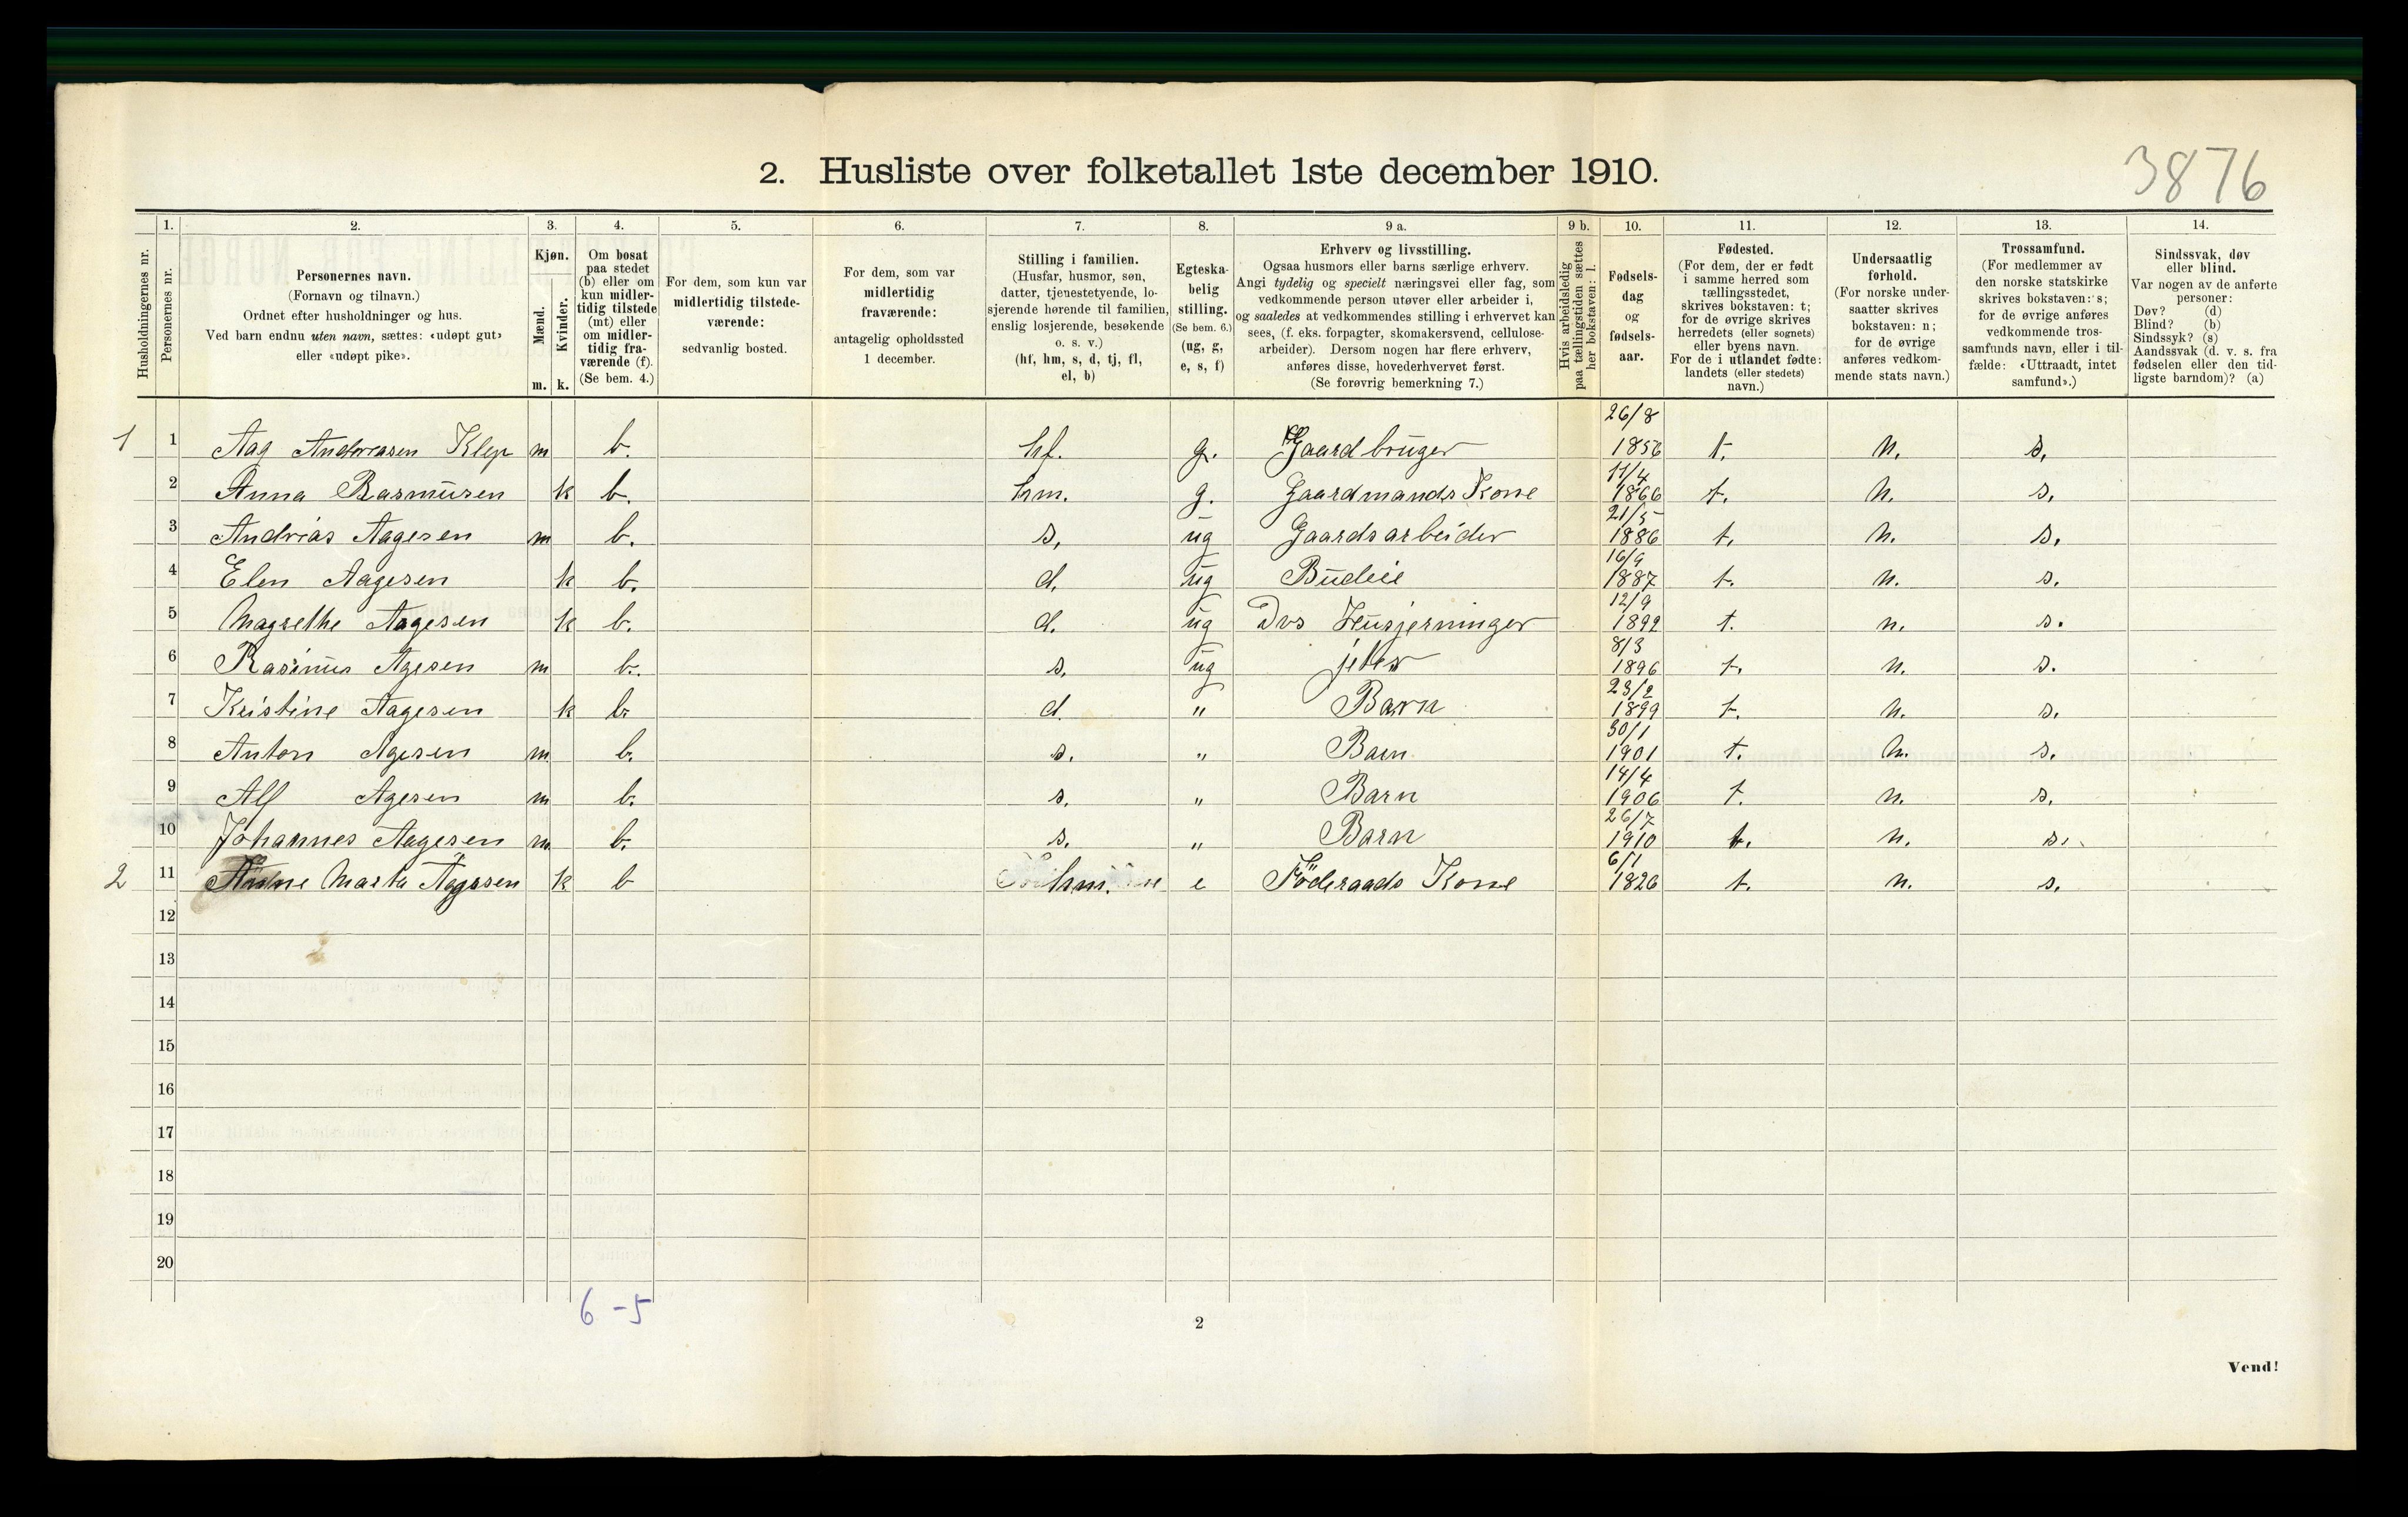 3876
2. Husliste over folketallet 1ste december 1910.
Husholdningernes nr.
1. Personernes nr.
2. Personernes navn. (Fornavn og tilnavn.) Ordnet efter husholdninger og hus. Ved barn endnu uten navn, sættes: «udøpt gut» eller «udøpt pike».
3. Kjøn. Mænd. m. Kvinder. k.
4. Om bosat paa stedet (b) eller om kun midlertidig tilstede (mt) eller om midlertidig fraværende (f). (Se bem. 4.)
5. For dem, som kun var midlertidig tilstedeværende: sedvanlig bosted.
6. For dem, som var midlertidig fraværende: antagelig opholdssted 1 december.
7. Stilling i familien. (Husfar, husmor, søn, datter, tjenestetyende, losjerende hørende til familien, enslig losjerende, besøkende o. s. v.) (hf, hm, s, d, tj, fl, el, b)
8. Egteskabelig stilling. (Se bem. 6.) (ug, g, e, s, f)
9 a. Erhverv og livsstilling. Ogsaa husmors eller barns særlige erhverv. Angi tydelig og specielt næringsvei eller fag, som vedkommende person utøver eller arbeider i, og saaledes at vedkommendes stilling i erhvervet kan sees, (f. eks. forpagter, skomakersvend, cellulosearbeider). Dersom nogen har flere erhverv, anføres disse, hovederhvervet først. (Se forøvrig bemerkning 7.)
9 b. Hvis arbeidsledig paa tællingstiden sættes her bokstaven: l.
10. Fødselsdag og fødselsaar.
11. Fødested. (For dem, der er født i samme herred som tællingsstedet, skrives bokstaven: t; for de øvrige skrives herredets (eller sognets) eller byens navn. For de i utlandet fødte: landets (eller stedets) navn.)
12. Undersaatlig forhold. (For norske undersaatter skrives bokstaven: n; for de øvrige anføres vedkommende stats navn.)
13. Trossamfund. (For medlemmer av den norske statskirke skrives bokstaven: s; for de øvrige anføres vedkommende trossamfunds navn, eller i tilfælde: «Uttraadt, intet samfund».)
14. Sindssvak, døv eller blind. Var nogen av de anførte personer: Døv? (d) Blind? (b) Sindssyk? (s) Aandssvak (d. v. s. fra fødselen eller den tidligste barndom)? (a)
1 1 Aag Andreasen Klep m b. hf. g. Gaardbruger 26/8 1856 t. n. s,
2 Anna Rasmusen k b. hm. g. Gaardmands Kone 11/4 1866 t. n. s,
3 Andrias Aagesen m b. s, ug Gaardsarbeider 21/5 1886 t. n. s.
4 Elen Aagesen k b. d. ug Budeie 16/9 1887 t. n. s.
5 Magrethe Aagesen k b. d. ug Dvs Husjerninger 12/9 1892 t. n. s.
6 Rasmus Agesen m b. s. ug jeter 8/3 1896 t. n. s.
7 Kristine Aagesen k b. d. " Barn 23/2 1899 t. n. s.
8 Anton Agesen m b. s. " Barn 30/1 1901 t. n. s.
9 Alf Agesen m b. s. " Barn 14/4 1906 t. n. s.
10 Johannes Aagesen m b. s. " Barn 26/7 1910 t. n. s.
2 11 Anne Marta Aagesen k b hm. e Föderaads Kone 6/1 1826 t. n. s.
12
13
14
15
16
17
18
19
20
6 - 5
2
Vend!